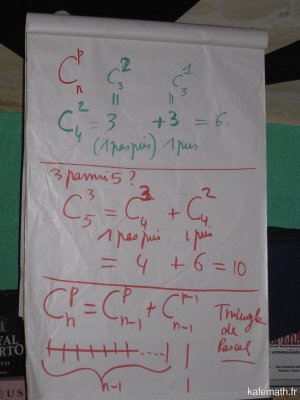 C_n^p C_3^2 C_3^1
C_4^2 = 3 + 3 = 6.
(1 pas pris) 1 pris
3 parmi 5 ?
C_5^3 = C_4^3 + C_4^2
1 pas pris 1 pris
= 4 + 6 = 10
C_n^p = C_{n-1}^p + C_{n-1}^{p-1}
Triangle
de
Pascal
n-1
1
1
YAL
ORTO
EUS
kafemath.fr